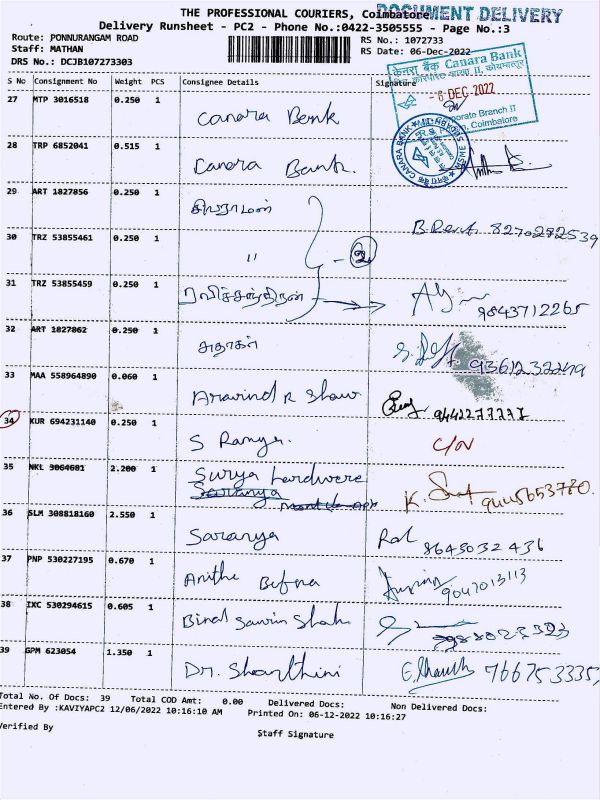 THE PROFESSIONAL COURIERS, Coimbatore
DOCUMENT DELIVERY
Delivery Runsheet - PC2 - Phone No.:0422-3505555 - Page No.:3
Route: PONNURANGAM ROAD
RS No.: 1072733
Staff: MATHAN
RS Date: 06-Dec-2022
DRS No.: DCJB107273303
केनरा बैंक Canara Bank
- 6 DEC 2022
Corporate Branch II
Coimbatore
S No Consignment No Weight PCS Consignee Details Signature
27 MTP 3016518 0.250 1 Canara Bank
28 TRP 6852041 0.515 1 Canara Bank.
29 ART 1827856 0.250 1 சிவராமன்
8270272539
30 TRZ 53855461 0.250 1 "
31 TRZ 53855459 0.250 1 ரவிச்சந்திரன் 9843712265
32 ART 1827862 0.250 1
33 MAA 558964890 0.060 1 Aravind R Shaw
34 KUR 694231140 0.250 1 S Ranya.
35 NKL 3064681 2.200 1 Surya hardware
Saranya
36 SLM 308818160 2.550 1 Saranya 8643032436
37 PNP 530227195 0.670 1 Anitha 9047013113
38 IXC 530294615 0.605 1 Binal Savin Shah
39 GPM 623054 1.350 1 Dr. Sharthini 766753335
Total No. Of Docs: 39 Total COD Amt: 0.00 Delivered Docs: Non Delivered Docs:
Entered By :KAVIYAPC2 12/06/2022 10:16:10 AM Printed On: 06-12-2022 10:16:27
Verified By
Staff Signature